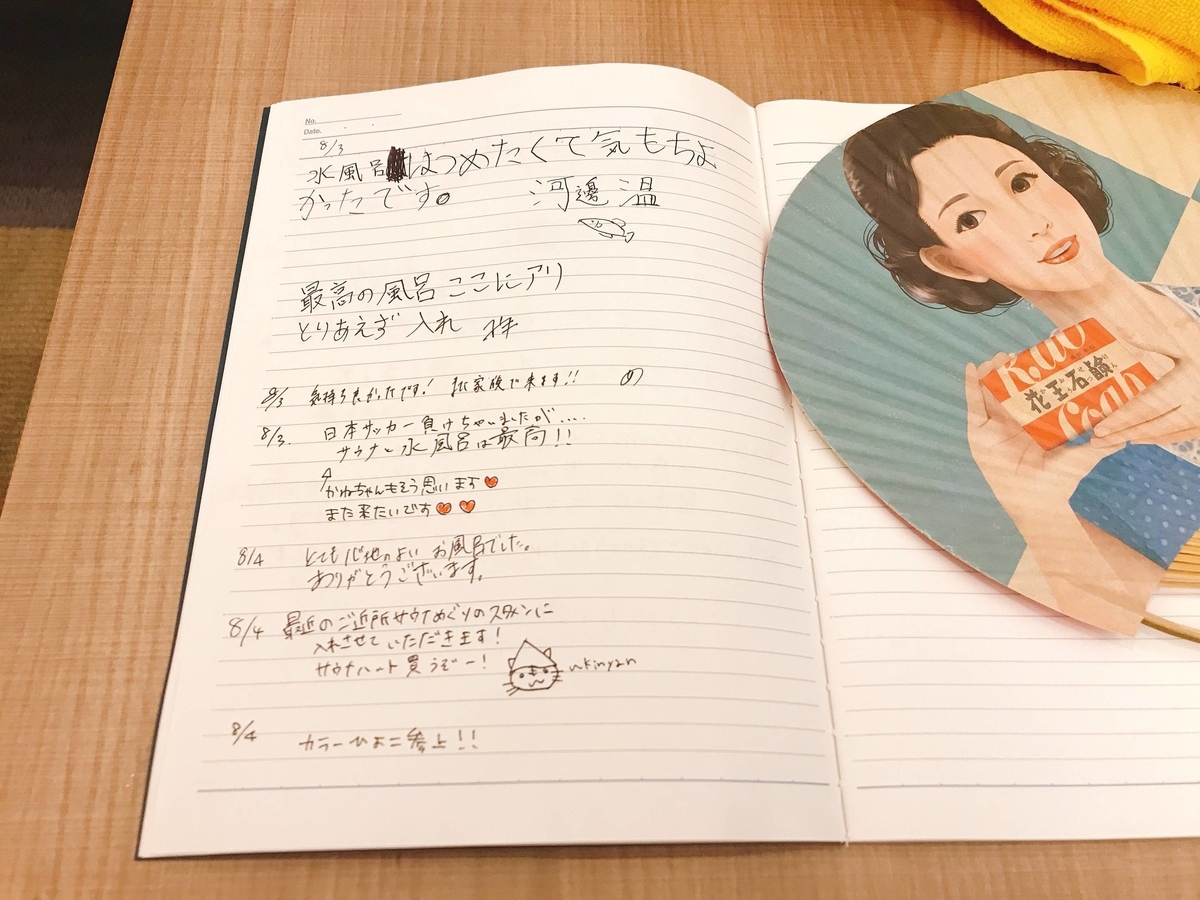 No.
Date.
8/3
水風呂はつめたくて気もちよ
かったです。 河邊 温
最高の風呂ここにアリ
とりあえず 入れ
8/3 気持ち良かったです! 家族で来ます!! め
8/3. 日本サッカー負けちゃいましたが....
サウナと水風呂は最高!!
かねちゃんもそう思います
また来たいです
8/4 とても心地のよい お風呂でした。
ありがとうございます。
8/4 最近のご近所サウナめぐりのスタメンに
入れさせていただきます!
サウナハット買うぞー! ukinyan
8/4 カラーひよこ参上!!
Kao
花王石鹸
Soap